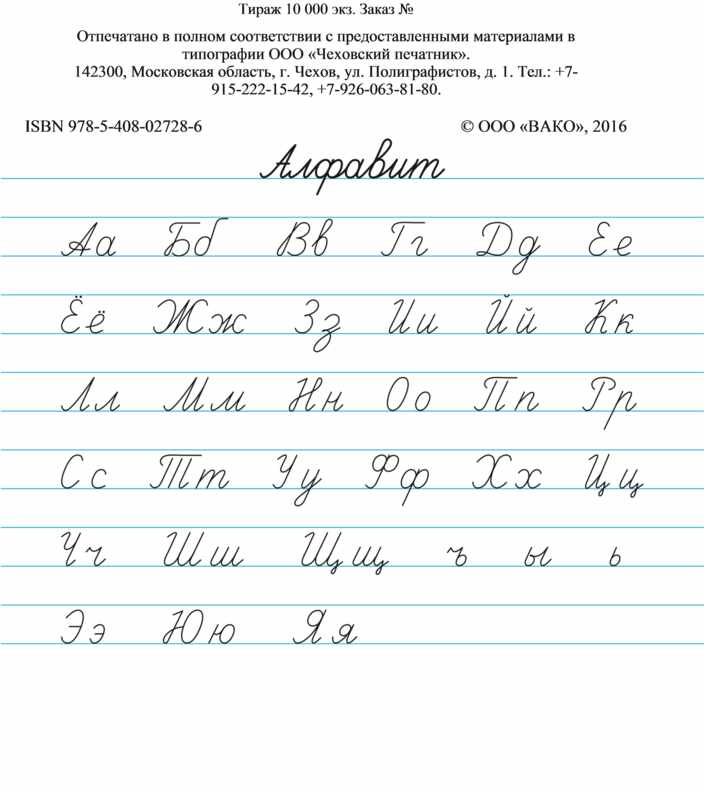 Тираж 10 000 экз. Заказ №
Отпечатано в полном соответствии с предоставленными материалами в
типографии ООО «Чеховский печатник».
142300, Московская область, г. Чехов, ул. Полиграфистов, д. 1. Тел.: +7-
915-222-15-42, +7-926-063-81-80.
ISBN 978-5-408-02728-6 © ООО «ВАКО», 2016
Алфавит
Аа Бб Вв Гг Дд Ее
Ёё Жж Зз Ии Йй Кк
Лл Мм Нн Оо Пп Рр
Сс Тт Уу Фф Хх Цц
Чч Шш Щщ ъ ы ь
Ээ Юю Яя